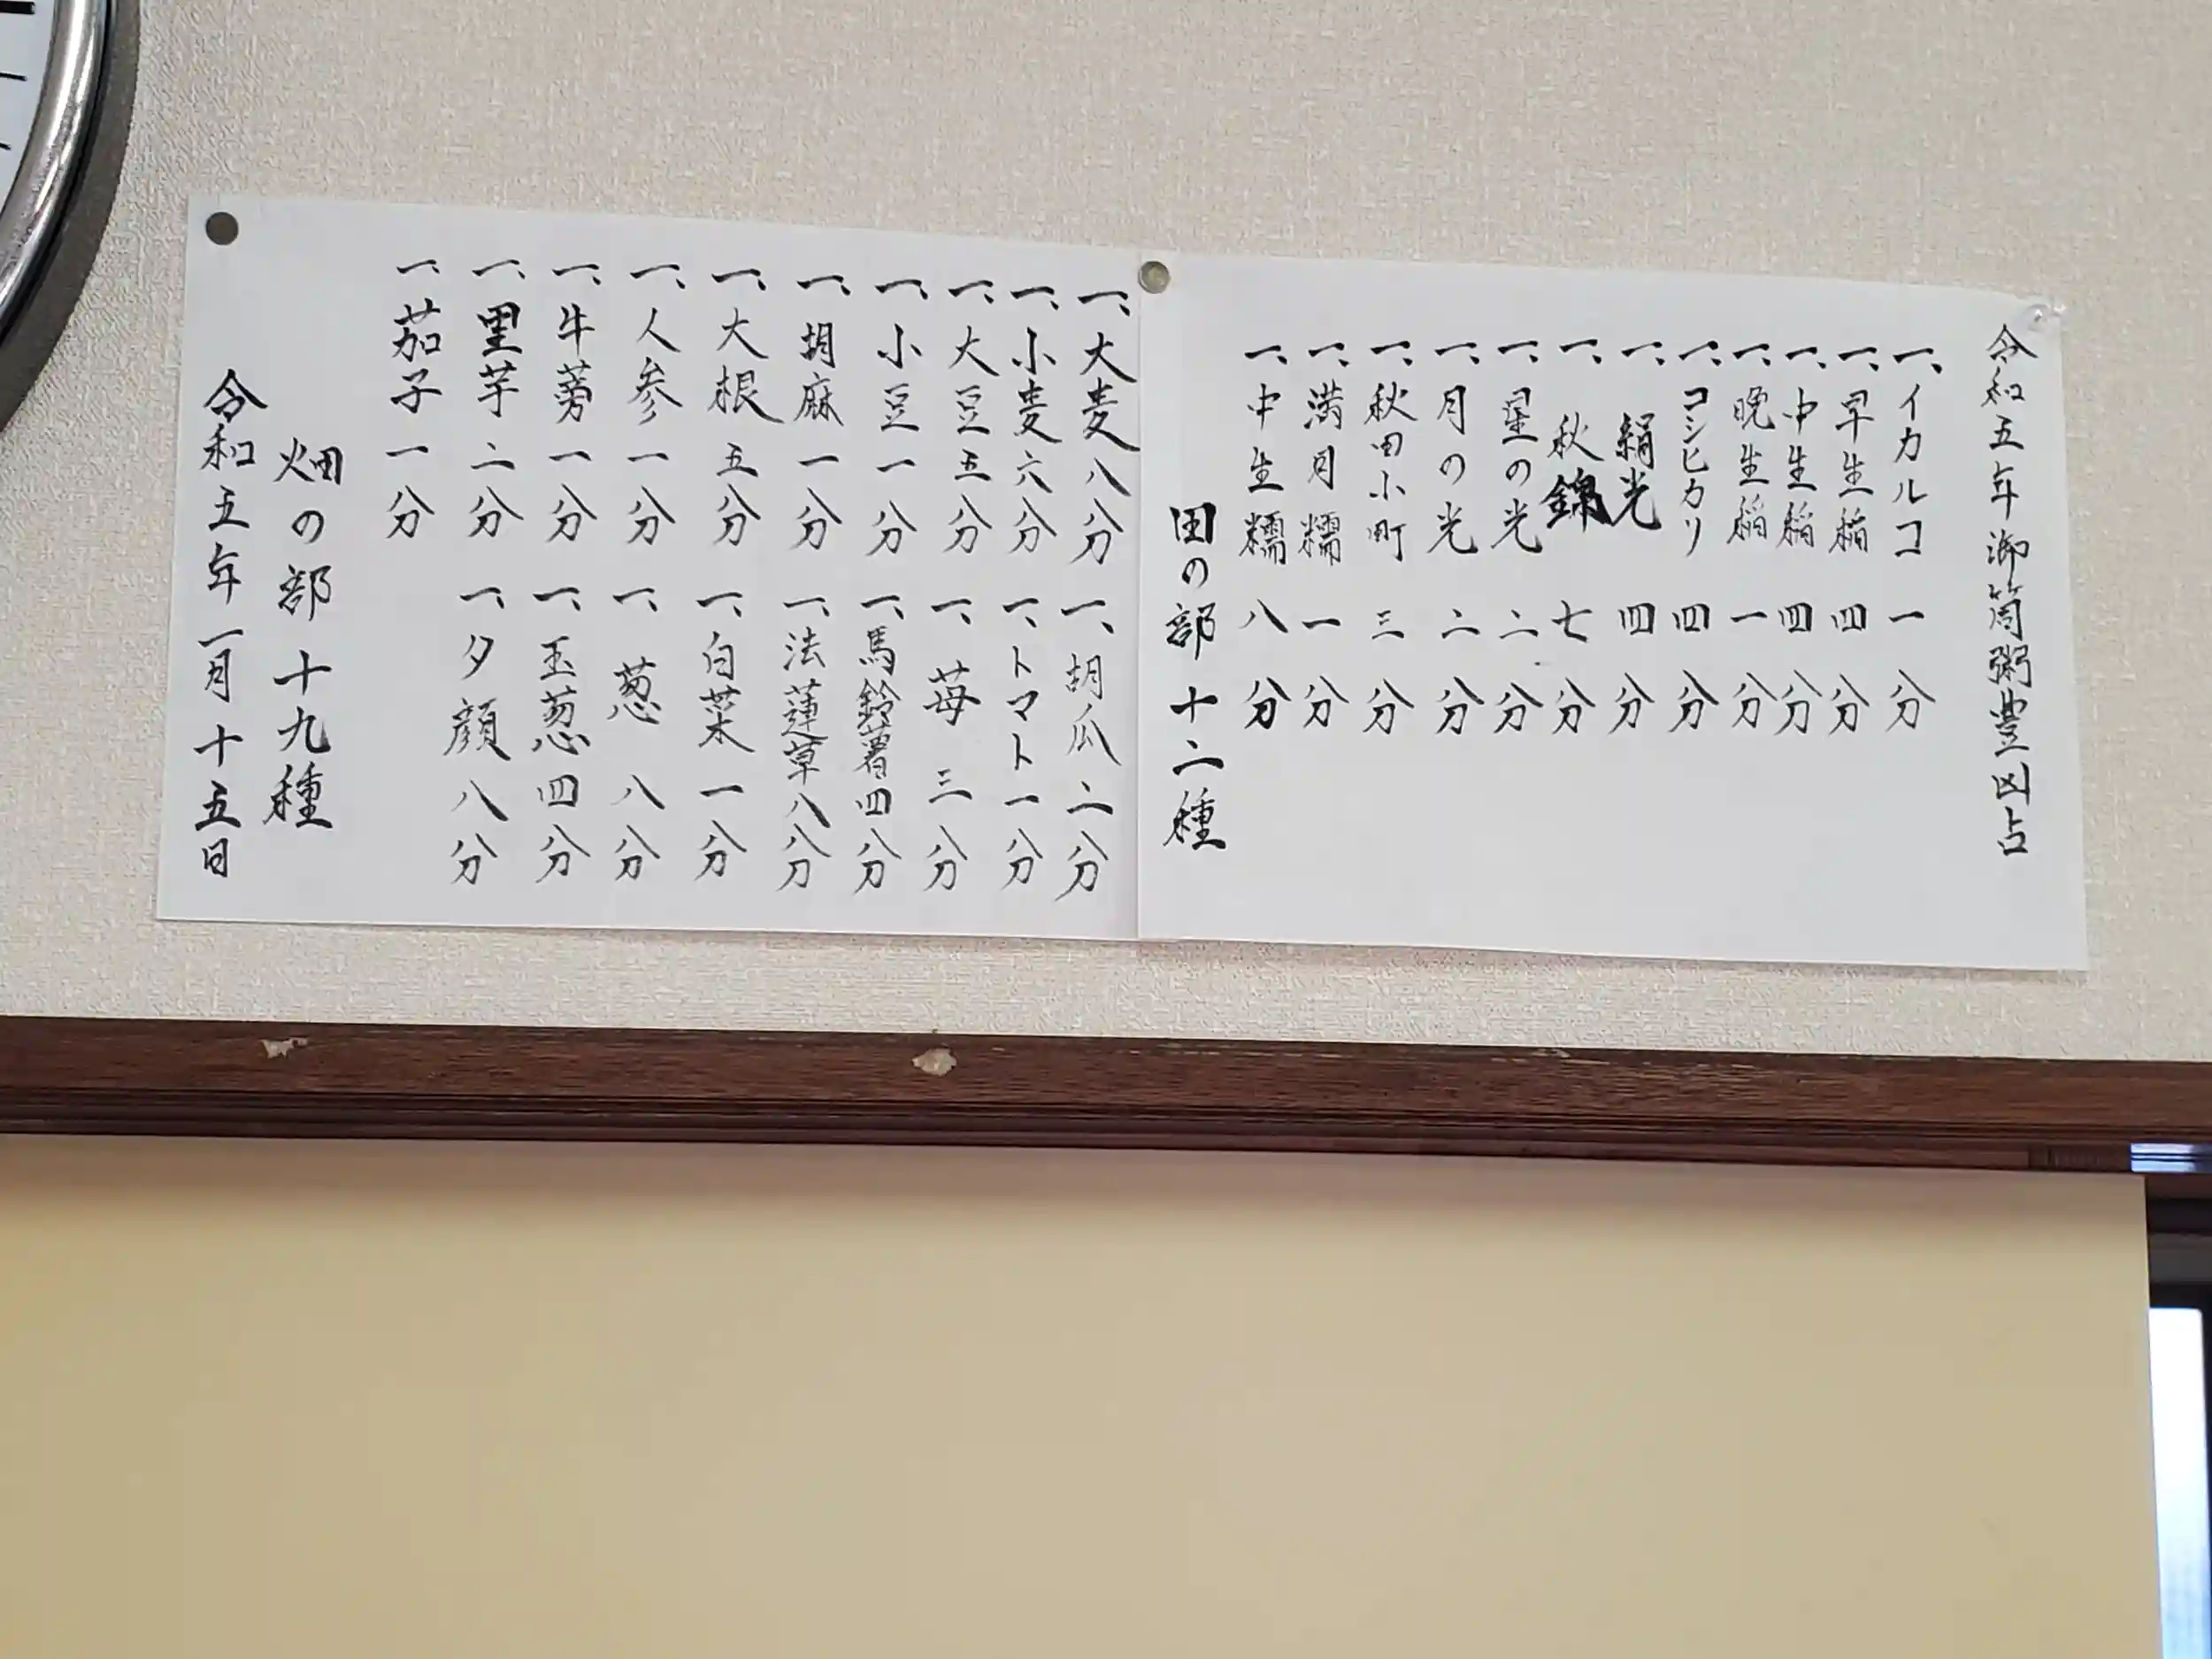 令和五年御筒粥豊凶占
一、イカルコ 一分
一、早生稲 四分
一、中生稲 四分
一、晩生稲 一分
一、コシヒカリ 四分
一、絹光 四分
一、秋錦 七分
一、星の光 二分
一、月の光 二分
一、秋田小町 三分
一、満月糯 一分
一、中生糯 八分
田の部 十二種
一、大麦 八分
一、小麦 六分
一、大豆 五分
一、小豆 一分
一、胡麻 一分
一、大根 五分
一、人参 一分
一、牛蒡 一分
一、里芋 二分
一、茄子 一分
一、胡瓜 二分
一、トマト 一分
一、苺 三分
一、馬鈴薯 四分
一、法蓮草 八分
一、白菜 一分
一、葱 八分
一、玉葱 四分
一、夕顔 八分
畑の部 十九種
令和五年一月十五日